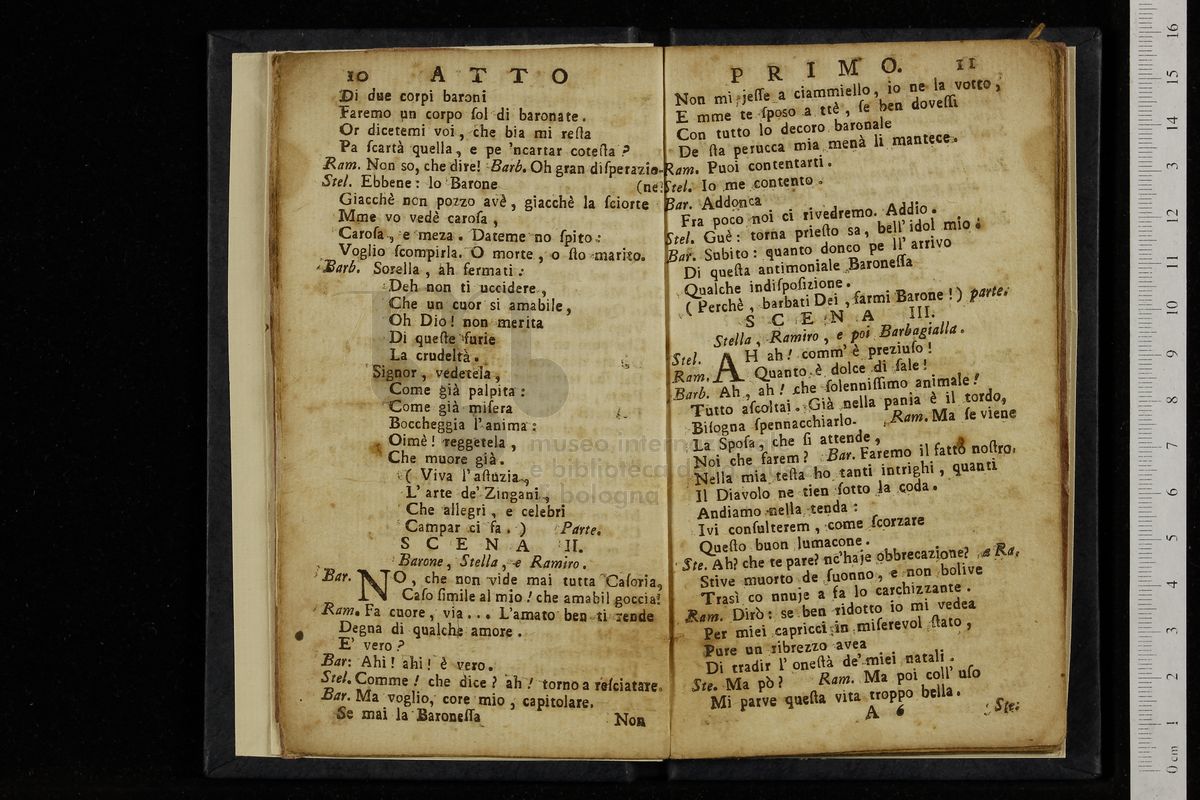 10 ATTO
Di due corpi baroni
Faremo un corpo ſol di baronate.
Or dicetemi voi, che bia mi reſta
Pa ſcartà quella, e pe 'ncartar coteſta?
Ram. Non so, che dire! Barb. Oh gran diſperazio-
Stel. Ebbene: lo Barone (ne!
Giacchè non pozzo avè, giacchè la ſciorte
Mme vo vedè caroſa,
Caroſa, e meza. Dateme no ſpito:
Voglio ſcompirla. O morte, o ſto marito.
Barb. Sorella, ah fermati:
Deh non ti uccidere,
Che un cuor si amabile,
Oh Dio! non merita
Di queſte furie
La crudeltà.
Signor, vedetela,
Come già palpita:
Come già miſera
Boccheggia l'anima:
Oimè! reggetela,
Che muore già.
( Viva l'aſtuzia,
L'arte de' Zingani,
Che allegri, e celebri
Campar ci fa. ) Parte.
SCENA II.
Barone, Stella, e Ramiro.
Bar. NO, che non vide mai tutta Caſoria,
Caſo ſimile al mio! che amabil goccia!
Ram. Fa cuore, via... L'amato ben ti rende
Degna di qualche amore.
E' vero?
Bar: Ahi! ahi! è vero.
Stel. Comme! che dice? ah! torno a reſciatare.
Bar. Ma voglio, core mio, capitolare.
Se mai la Baroneſſa
Non
PRIMO. 11
Non mi jeſſe a ciammiello, io ne la votto,
E mme te ſposo a ttè, ſe ben doveſſi
Con tutto lo decoro baronale
De ſta perucca mia menà li mantece.
Ram. Puoi contentarti.
Stel. Io me contento.
Bar. Addonca
Fra poco noi ci rivedremo. Addio.
Stel. Guè: torna prieſto sa, bell'idol mio!
Bar. Subito: quanto donco pe ll'arrivo
Di queſta antimoniale Baroneſſa
Qualche indiſpoſizione.
( Perchè, barbati Dei, farmi Barone! ) parte.
SCENA III.
Stella, Ramiro, e poi Barbagialla.
Stel. AH ah! comm' è preziuſo!
Ram. Quanto è dolce di ſale!
Barb. Ah, ah! che ſolenniſſimo animale!
Tutto aſcoltai. Già nella pania è il tordo,
Biſogna ſpennacchiarlo. Ram. Ma ſe viene
La Spoſa, che ſi attende,
Noi che farem? Bar. Faremo il fatto noſtro.
Nella mia teſta ho tanti intrighi, quanti
Il Diavolo ne tien ſotto la coda.
Andiamo nella tenda:
Ivi conſulterem, come ſcorzare
Queſto buon lumacone.
Ste. Ah? che te pare? nc'haje obbrecazione? a Ra.
Stive muorto de ſuonno, e non bolive
Trasì co nnuje a fa lo carchizzante.
Ram. Dirò: se ben ridotto io mi vedea
Per miei capricci in miſerevol ſtato,
Pure un ribrezzo avea
Di tradir l'oneſtà de' miei natali.
Ste. Ma pò? Ram. Ma poi coll'uſo
Mi parve queſta vita troppo bella.
A 6 Ste.